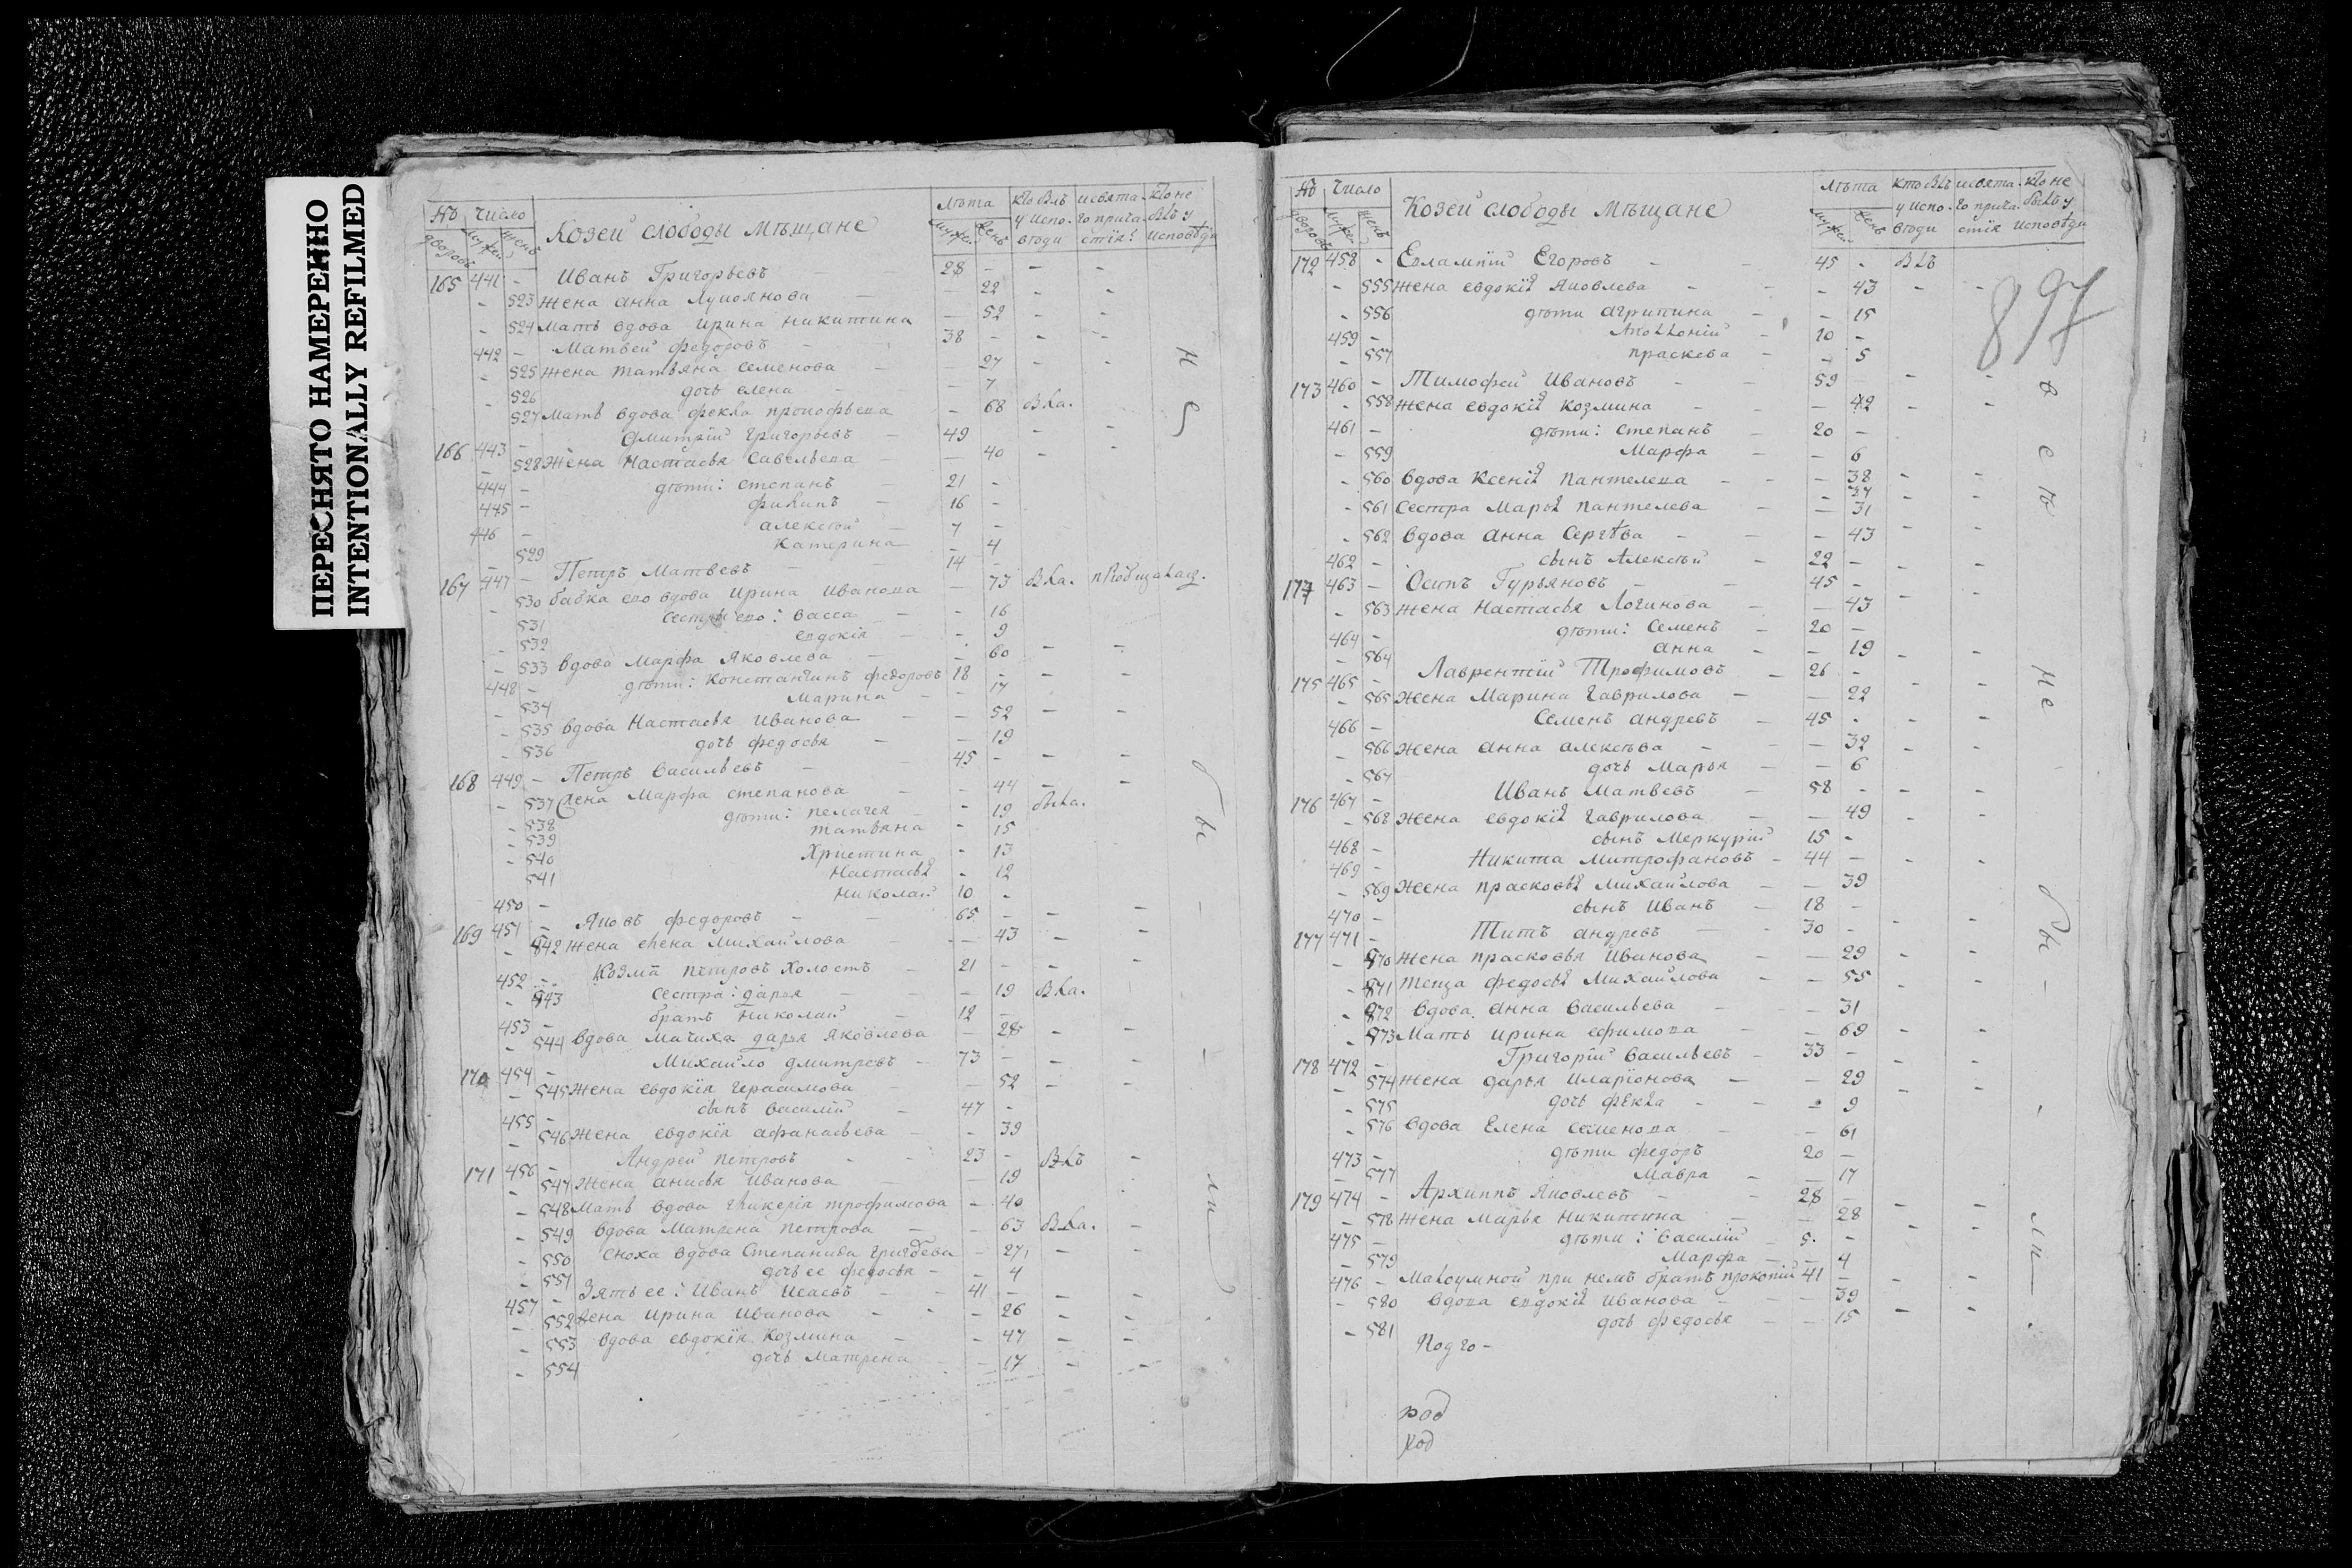 ПЕРЕСНЯТО НАМЕРЕННО
INTENTIONALLY REFILMED
№ дворовъ Число мужей женъ Козей слободы Мѣщане Лѣта мужей женъ кто былъ у исповѣди и святаго причастїя кто не былъ у исповѣди
165 441 - Иванъ Григорьевъ - 28 - - -
- 523 жена анна Лукоянова - - 22 - -
- 524 Мать вдова ирина никитина - 52 - -
442 - Матвей федоровъ - 38 - - -
- 525 жена татьяна семенова - - 27 - -
- 526 дочь елена - - 7
527 Мать вдова фекла прокофьева - 68 была.
166 443 - Дмитрїй григорьевъ - 49 - -
- 528 Жена Настасья савельева - - 40 - -
444 - дѣти: степанъ - 21 -
445 - филипъ - 16 -
446 - алексѣй - 7 -
- 529 Катерина - 4
167 447 - Петръ Матвевъ - 14 -
- 530 бабка его вдова ирина иванова - 73 была. прїобщалась.
- 531 сестры его: васса - - 16
- 532 евдокїя - - 9
- 533 вдова Марфа Яковлева - - 60 - -
448 - дѣти: константинъ федоровъ 18 - - -
- 534 Марина - - 17
- 535 вдова Настасья иванова - - 52 - -
- 536 дочь федосья - - 19
168 449 - Петръ васильевъ - 45 - - -
- 537 жена Марфа степанова - - 44 - -
- 538 дѣти: пелагея - - 19 была.
- 539 татьяна - 15
- 540 Христина - 13
541 Настасья - 12
450 - николай 10 -
169 451 - Яковъ федоровъ - 65 - - -
- 542 жена елена михайлова - - 43 - -
452 - Козма петровъ холостъ - 21 - - -
- 543 сестра: дарья - - 19 была.
453 - братъ николай - 12 -
- 544 вдова мачиха дарья Яковлева - 28 - -
170 454 - Михайло дмитревъ - 73 - - -
- 545 жена евдокїя герасимова - - 52 - -
455 - сынъ василїй - 47 -
- 546 жена евдокїя афанасьева - - 39
171 456 - Андрей петровъ - 23 - былъ -
- 547 Жена анисья иванова - - 19
- 548 Мать вдова гликерїя трофимова - 40
- 549 вдова Матрена петрова - - 63 была. -
- 550 сноха вдова Степанида григорева - 27 - -
- 551 дочь ее федосья - - 4
457 - Зять ее: Иванъ Исаевъ - 41 - - -
- 552 жена ирина иванова - - 26 - -
- 553 вдова евдокїя козмина - - 47 - -
- 554 дочь матрена - - 17 - -
не бы - ли
№ дворовъ Число мужей женъ Козей слободы Мѣщане Лѣта мужей женъ кто былъ у исповѣди и святаго причастїя кто не былъ у исповѣди
897
172 458 - Евлампїй Егоровъ - 45 - былъ
- 555 жена евдокїя Яковлева - - 43 - -
- 556 дѣти агрипина - - 15
459 - Аполлонїй - 10 -
- 557 праскева - - 5
173 460 - Тимофей Ивановъ - 59 - - -
- 558 жена евдокїя козмина - - 42 - -
461 - дѣти: степанъ - 20 -
- 559 Марфа - - 6
- 560 вдова ксенїя пантелева - - 38 - -
- 561 сестра марья пантелева - - 31 - -
- 562 вдова анна сергѣва - - 43 - -
462 - сынъ Алексѣй - 22 -
174 463 - Осипъ Гурьяновъ - 45 - - -
- 563 жена настасья Логинова - 43
464 - дѣти: семенъ - 20 -
- 564 анна - - 19 - -
175 465 - Лаврентїй Трофимовъ - 26 - - -
- 565 жена Марина гаврилова - - 22
466 - Семенъ андревъ - 45 - - -
- 566 жена анна алексѣва - - 32 - -
- 567 дочь марья - - 6
176 467 - Иванъ матвевъ - 58 - - -
- 568 жена евдокїя гаврилова - 49 - -
468 - сынъ меркурїй 15 -
469 - Никита Митрофановъ - 44 - - -
- 569 Жена прасковья михайлова - - 39
470 - сынъ иванъ - 18 -
177 471 - Титъ андревъ - 30 - - -
- 570 жена прасковья иванова - - 29 - -
- 571 теща федосья михайлова - 55 - -
- 572 вдова анна васильева - - 31
- 573 Мать ирина ефимова - - 69 - -
178 472 - Григорїй васильевъ - 33 - - -
- 574 жена дарья иларїонова - - 29 - -
- 575 дочь фекла - - 9
- 576 вдова елена семенова - - 61
473 - дѣти федоръ 20 -
- 577 мавра - - 17
179 474 - Архиппъ Яковлевъ - 28 - - -
- 578 жена марья никитина - - 28 - -
475 - дѣти: василїй - 5 -
- 579 марфа - - 4
476 - Малоумной при немъ братъ прокопїй 41 - - -
- 580 вдова евдокїя иванова - - 39 - -
- 581 дочь федосья - - 15
Подго-
весь не бы - ли